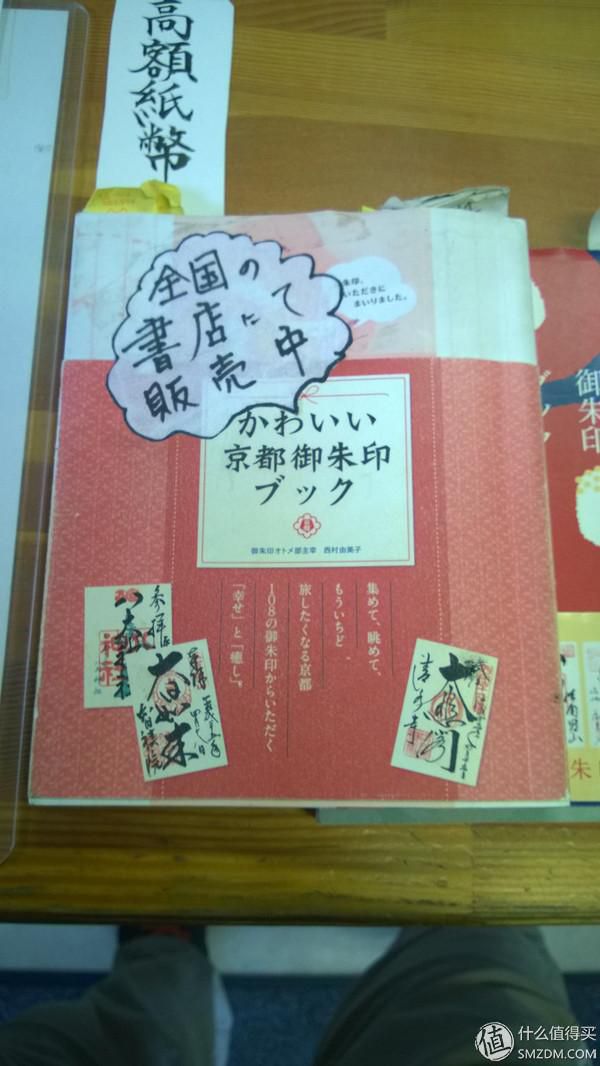 高額紙幣
朱印、
いただきに
まいりました。
全国の
書店にて
販売中
かわいい
京都御朱印
ブック
御朱印オトメ部主宰 西村由美子
集めて、眺めて、
もういちど
旅したくなる京都
108の御朱印からいただく
「幸せ」と「癒し」。
参拝
大日如来
智積院
清水寺
御朱印
ブック
朱
値 什么值得买
SMZDM.COM